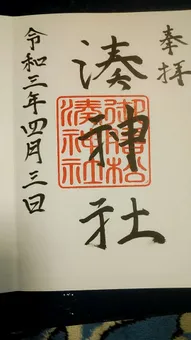 奉拝
湊神社
令和三年四月三日